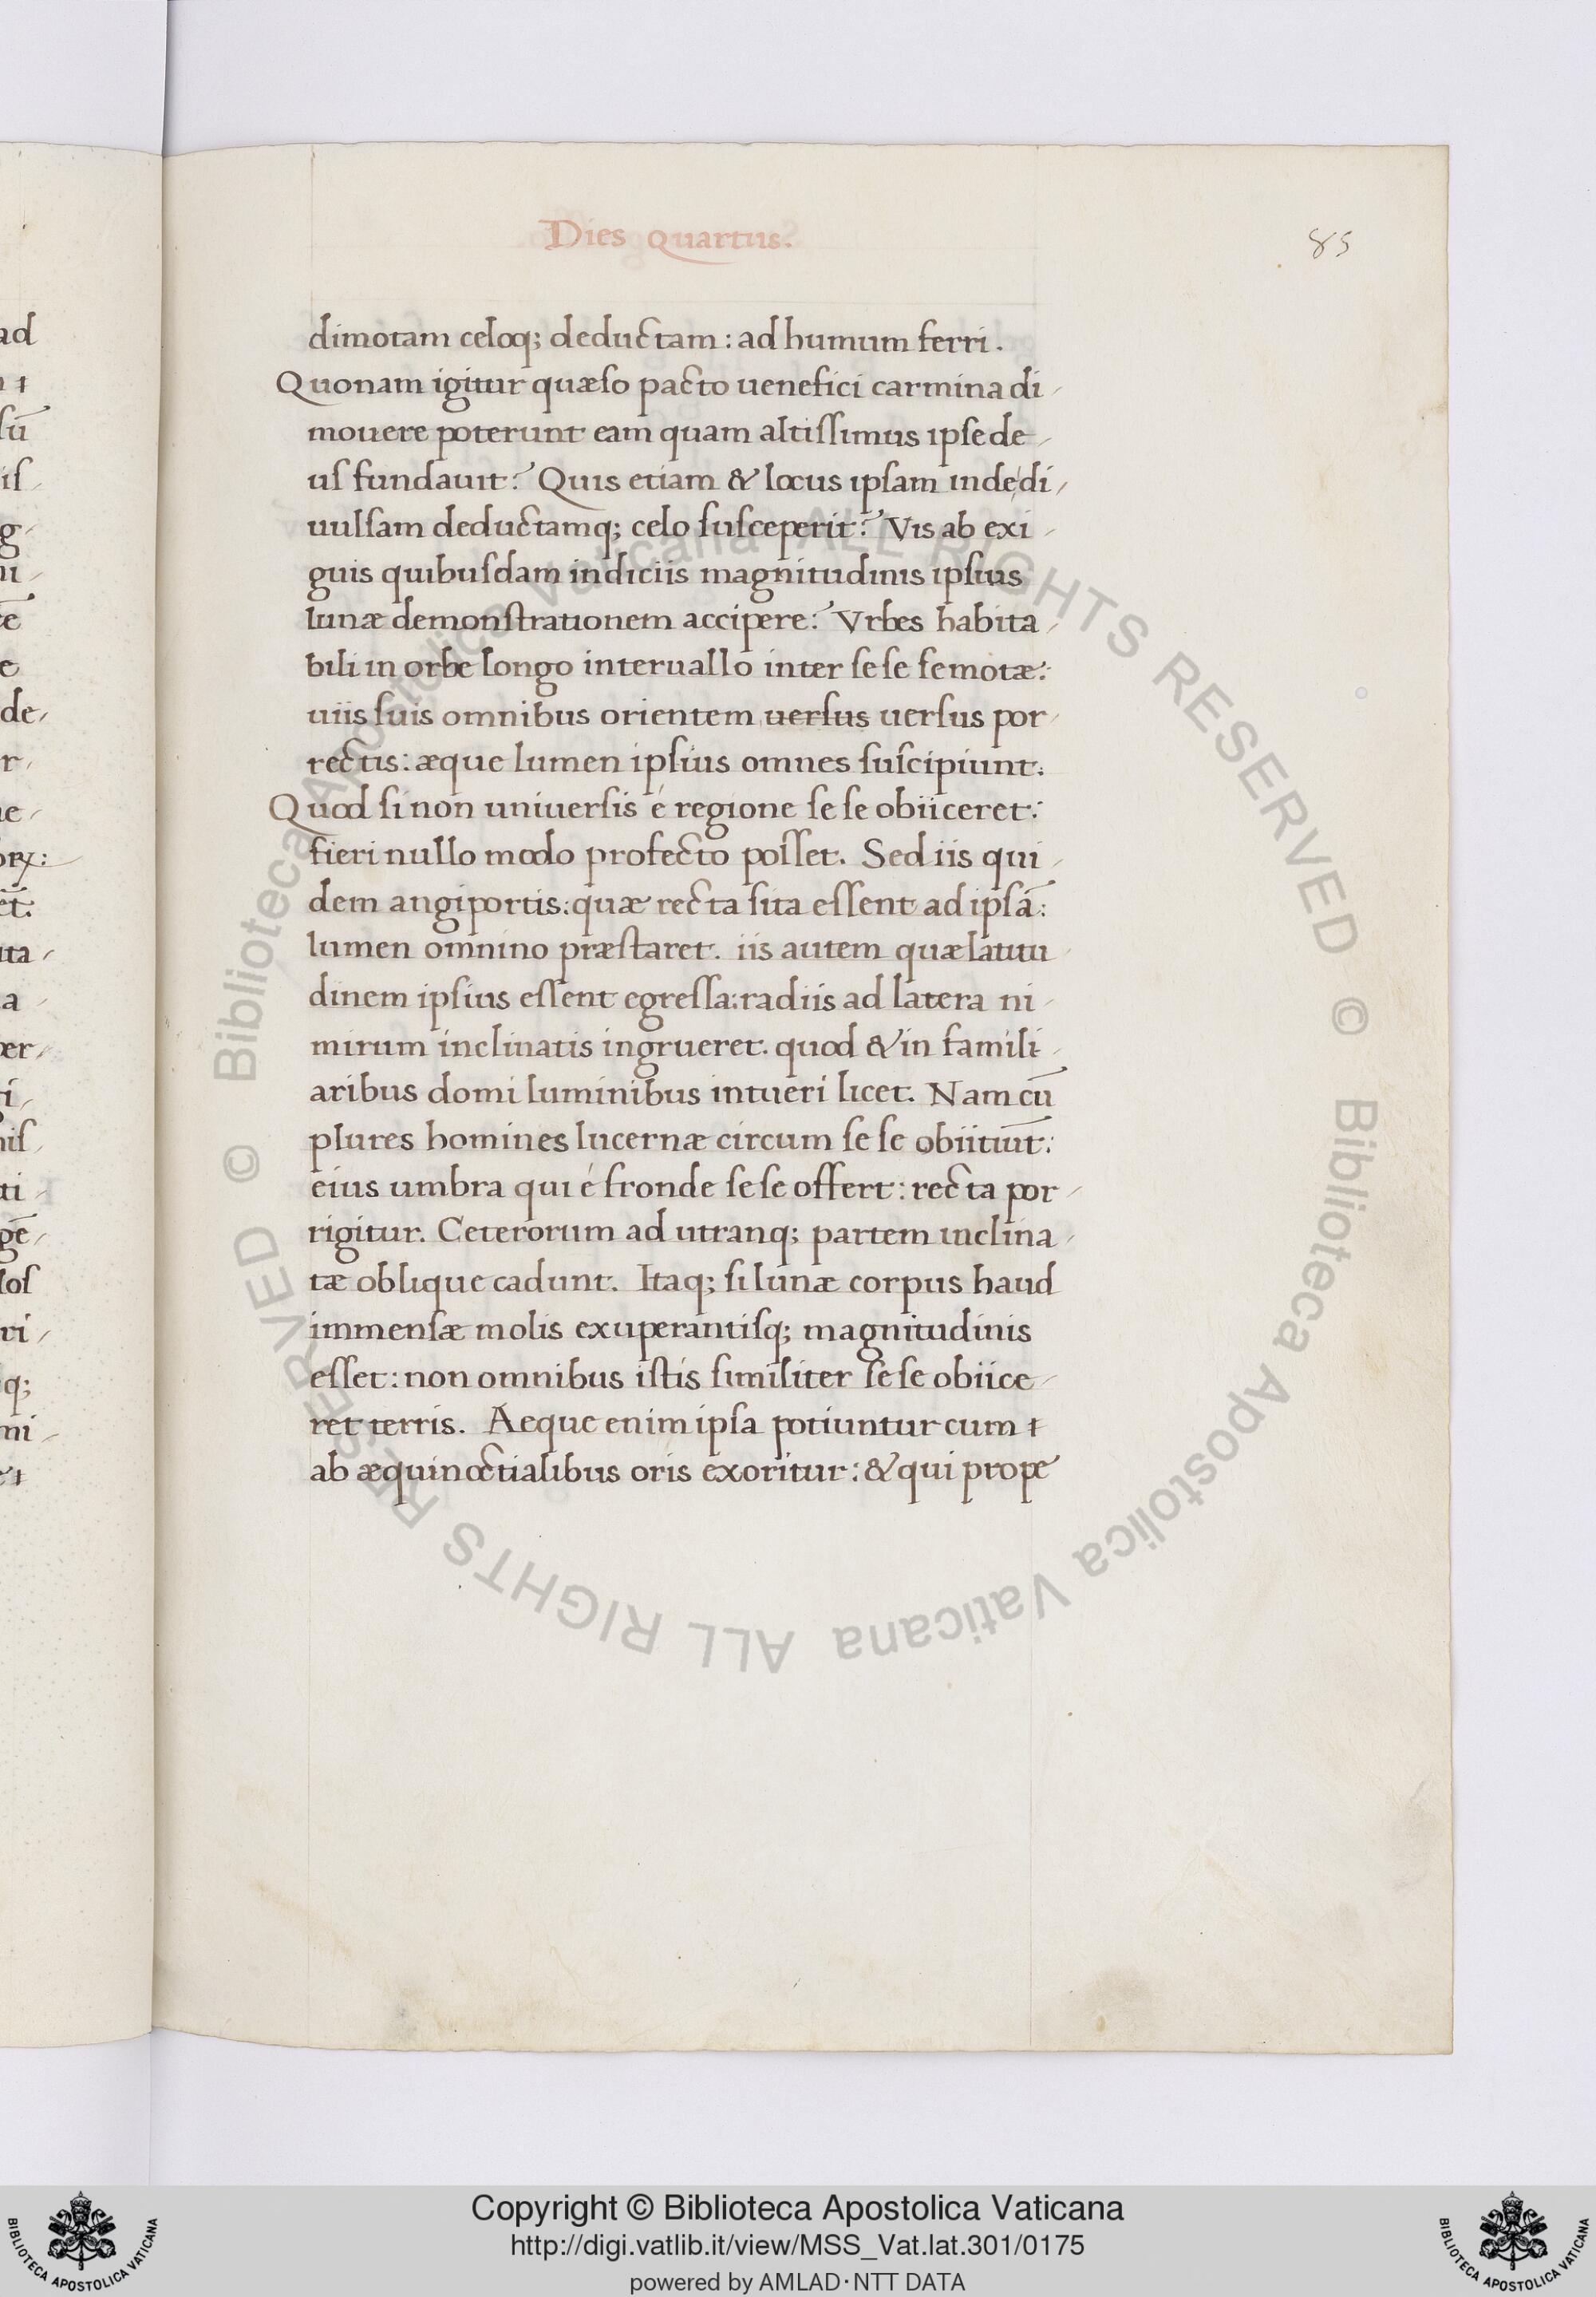 Dies quartus.
85
dimotam celoq; deductam: ad humum ferri.
Quonam igitur quæso pacto uenefici carmina di-
mouere poterunt eam quam altissimus ipse de-
us fundauit? Quis etiam & locus ipsam inde di-
uulsam deductamq; celo susceperit? Vis ab exi-
guis quibusdam indiciis magnitudinis ipsius
lunæ demonstrationem accipere? Vrbes habita-
bili in orbe longo interuallo inter se se semotæ:
uiis suis omnibus orientem uersus uersus por-
rectis: æque lumen ipsius omnes suscipiunt:
Quod si non uniuersis é regione se se obiiceret:
fieri nullo modo profecto posset. Sed iis qui-
dem angiportis: quæ recta sita essent ad ipsā:
lumen omnino præstaret. iis autem quæ latitu-
dinem ipsius essent egressa: radiis ad latera ni-
mirum inclinatis ingrueret. quod & in famili-
aribus domi luminibus intueri licet. Nam cū
plures homines lucernæ circum se se obiitiūt:
eius umbra qui é fronde se se offert: recta por-
rigitur. Ceterorum ad utranq; partem inclina-
tæ oblique cadunt. Itaq; si lunæ corpus haud
immensæ molis exuperantisq; magnitudinis
esset: non omnibus istis similiter se se obiice-
ret terris. Aeque enim ipsa potiuntur cum &
ab æquinoctialibus oris exoritur: & qui prope
ad
sū
is
g
ni
e
de
r
ne
et.
ita
a
per
nis
ti
gē
los
ri
q;
mi
© Biblioteca Apostolica Vaticana ALL RIGHTS RESERVED © Biblioteca Apostolica Vaticana ALL RIGHTS RESERVED
Copyright © Biblioteca Apostolica Vaticana
http://digi.vatlib.it/view/MSS_Vat.lat.301/0175
powered by AMLAD·NTT DATA
BIBLIOTECA APOSTOLICA VATICANA
BIBLIOTECA APOSTOLICA VATICANA